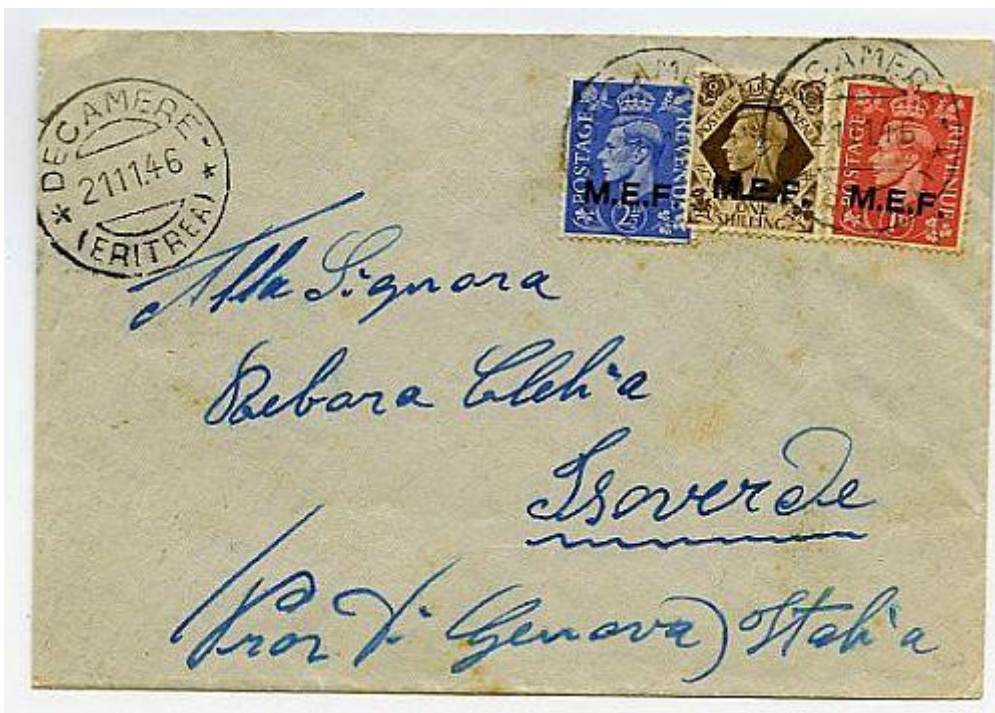 DECAMERE
21.11.46
(ERITREA)
POSTAGE REVENUE
M.E.F.
2½D
POSTAGE REVENUE
M.E.F.
ONE SHILLING
POSTAGE REVENUE
M.E.F.
1D
Alla Signora
Rebora Clelia
Isoverde
(Prov di Genova) Italia